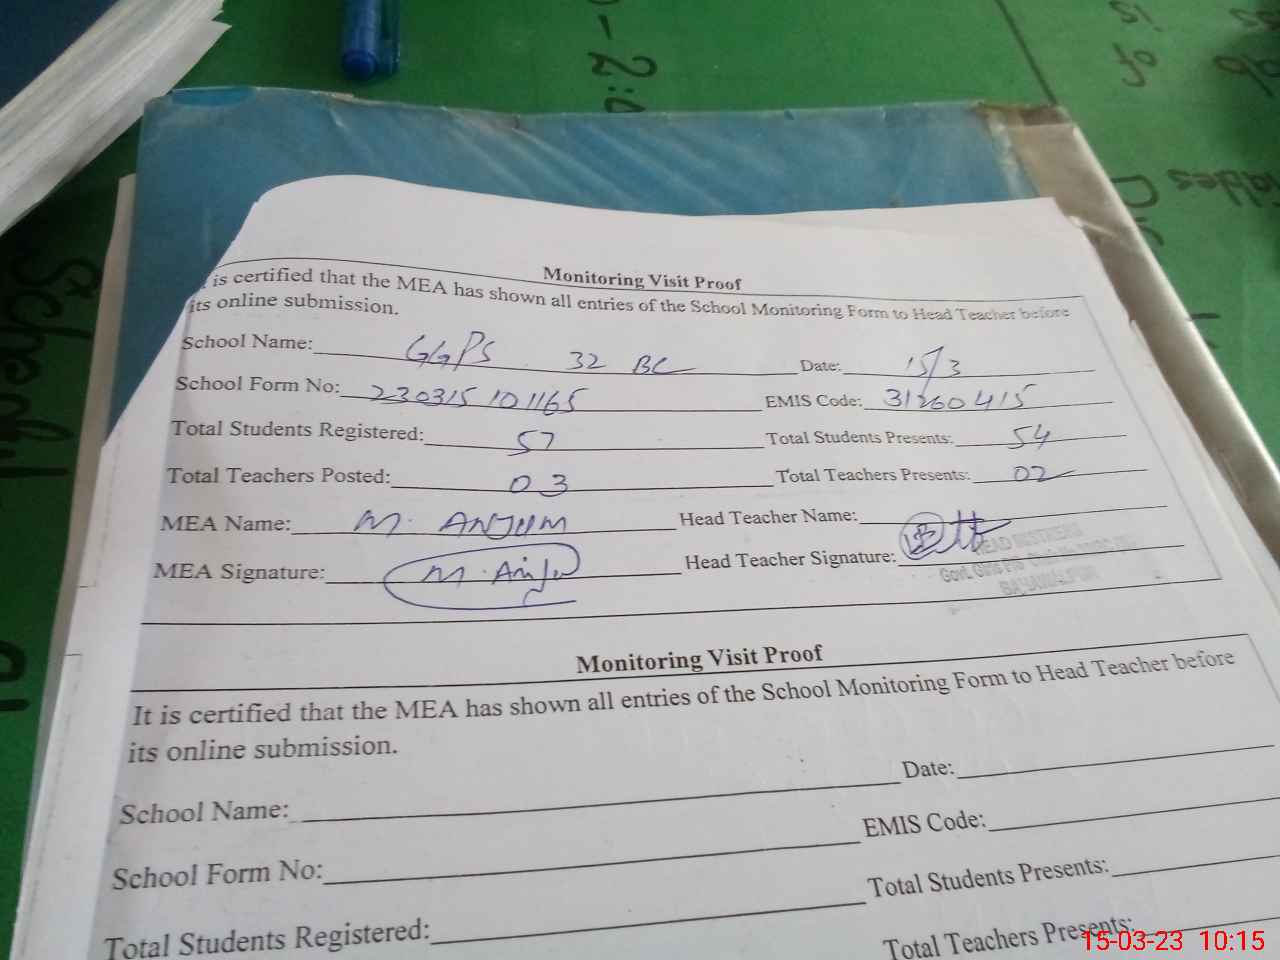 Monitoring Visit Proof
is certified that the MEA has shown all entries of the School Monitoring Form to Head Teacher before
its online submission.
School Name: GGPS 32 BC Date: 15/3
School Form No: 230315101165 EMIS Code: 31260415
Total Students Registered: 57 Total Students Presents: 54
Total Teachers Posted: 03 Total Teachers Presents: 02
MEA Name: M. ANJUM Head Teacher Name:
MEA Signature: M. Anju Head Teacher Signature:
HEAD MISTRESS
Govt. Girls
BAHAWALPUR
Monitoring Visit Proof
It is certified that the MEA has shown all entries of the School Monitoring Form to Head Teacher before
its online submission.
School Name: Date:
School Form No: EMIS Code:
Total Students Registered: Total Students Presents:
Total Teachers Presents:
15-03-23 10:15